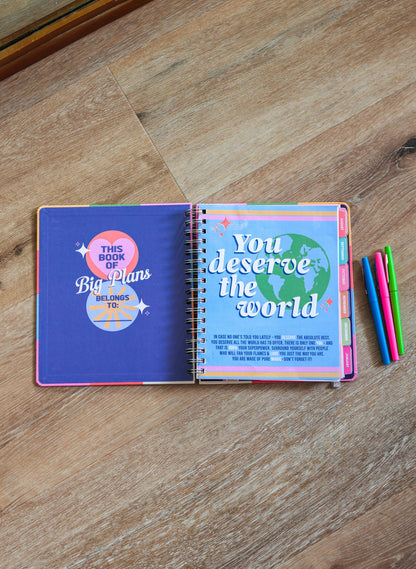 THIS
BOOK OF
Big Plans
BELONGS
TO:
You
deserve
the
world
IN CASE NO ONE'S TOLD YOU LATELY - YOU DESERVE THE ABSOLUTE BEST.
YOU DESERVE ALL THE WORLD HAS TO OFFER. THERE IS ONLY ONE YOU - AND
THAT IS YOUR SUPERPOWER. SURROUND YOURSELF WITH PEOPLE
WHO WILL FAN YOUR FLAMES & LOVE YOU JUST THE WAY YOU ARE.
YOU ARE MADE OF PURE MAGIC - DON'T FORGET IT!